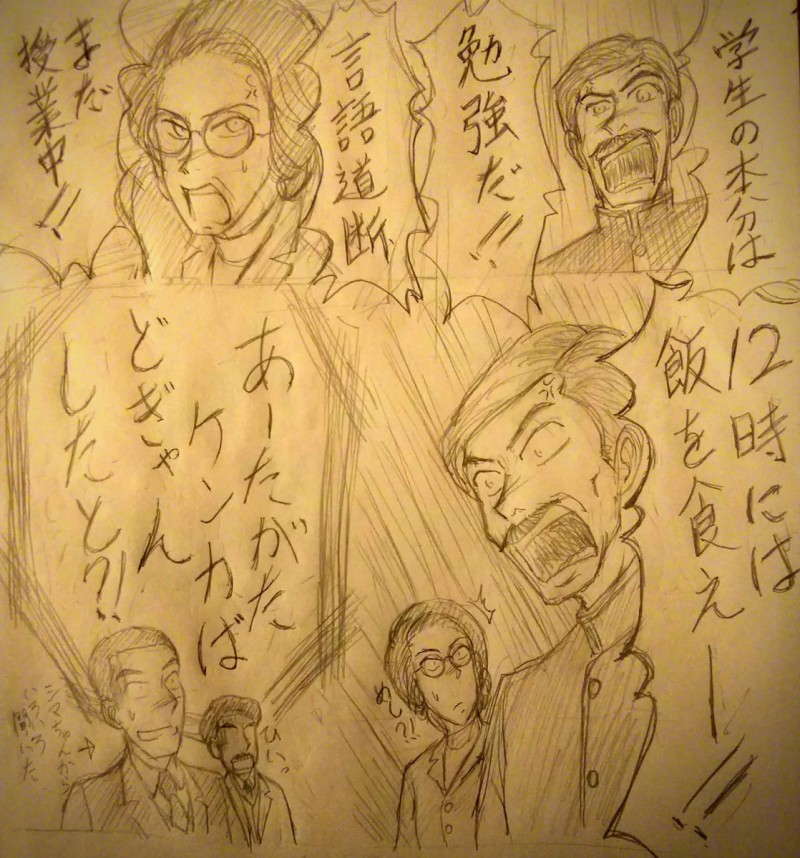 学生の本分は
勉強だ!!
言語道断、
まだ
授業中!!
12時には
飯を食えーー!!
めし?!
あーたがた
ケンカば
どぎゃん
したと?!
ひいっ
シマちゃんから
いろいろ
聞いた